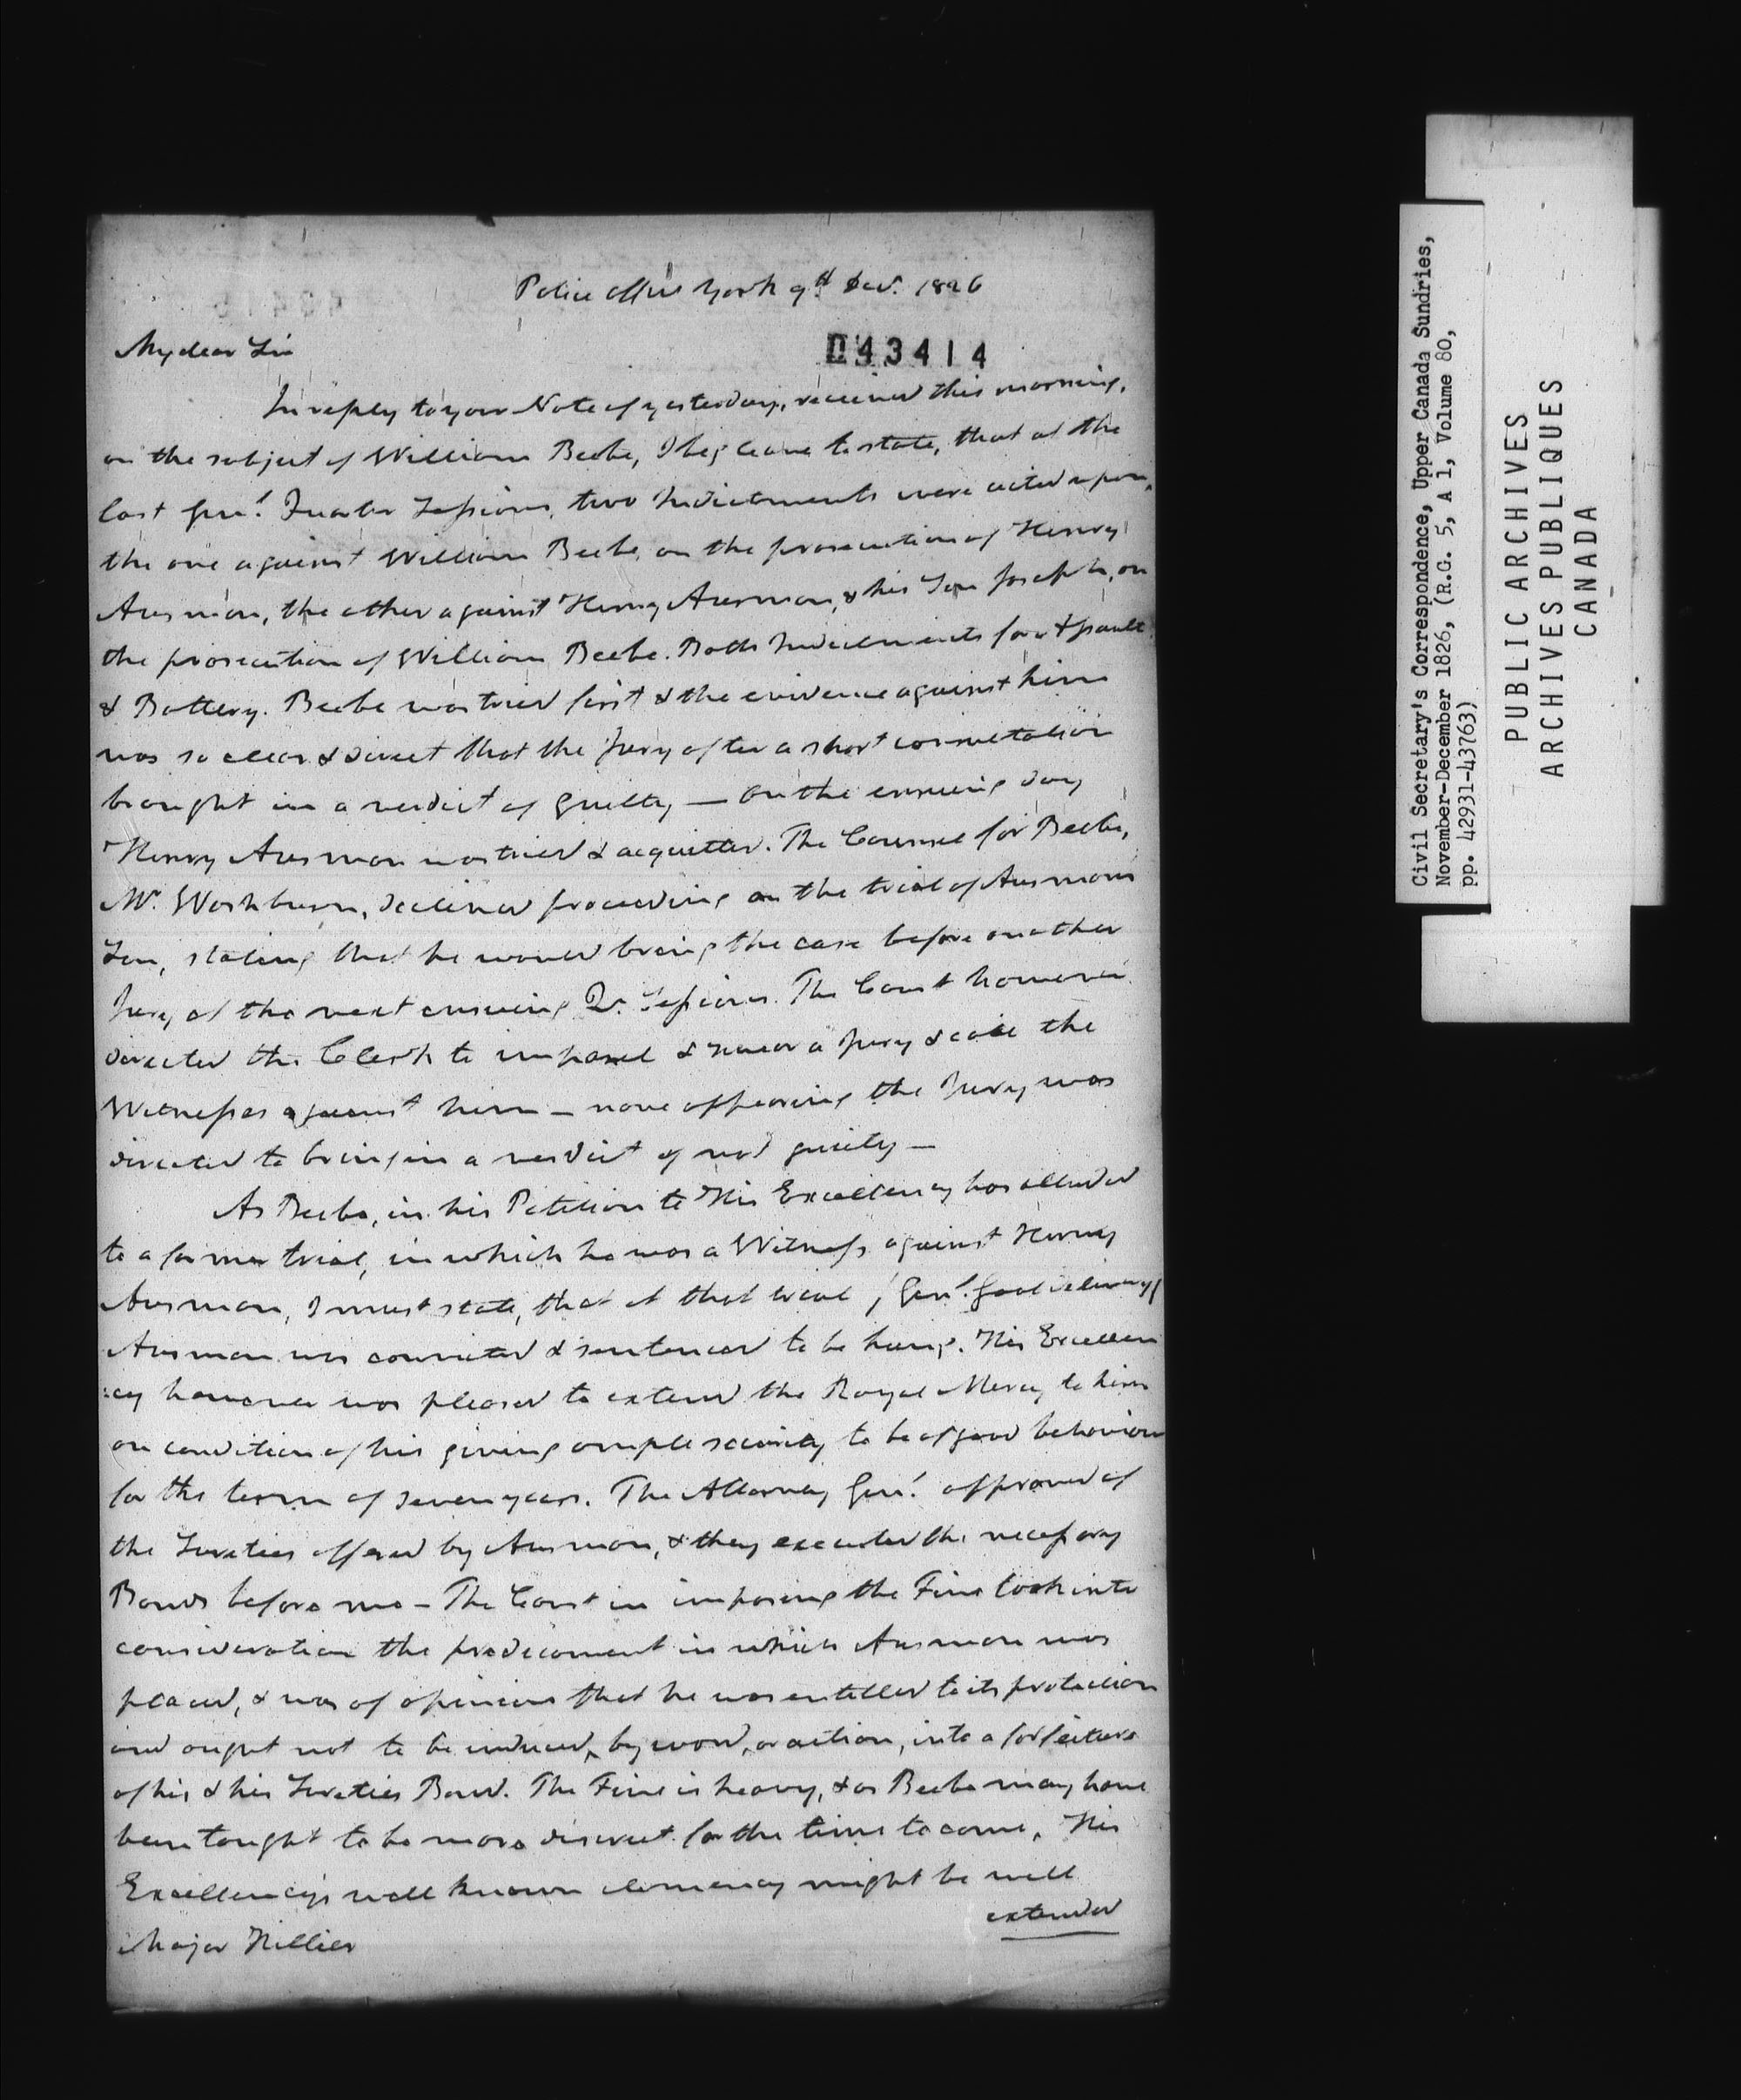 Police Office York 9th Decr. 1826
My dear Sir
043414
In reply to your Note of yesterday, received this morning,
on the subject of William Beebe, I beg leave to state, that at the
last Genl. Quarter Sessions, two Indictments were acted upon,
the one against William Beebe, on the prosecution of Henry
Ausman, the other against Henry Ausman, & his Son Joseph, on
the prosecution of William Beebe. Both Indictments for Assault
& Battery. Beebe was tried first & the evidence against him
was so clear & direct that the Jury after a short consultation
brought in a verdict of guilty — On the ensuing day
Henry Ausman was tried & acquitted. The Counsel for Beebe,
Mr. Washburn, declined proceeding on the trial of Ausman's
Son, stating that he would bring the case before another
Jury at the next ensuing Qr. Sessions. The Court however
directed the Clerk to impanel & swear a Jury & call the
Witnesses against him — none appearing the Jury was
directed to bring in a verdict of not guilty —
As Beebe, in his Petition to His Excellency has alluded
to a former trial, in which he was a Witness against Henry
Ausman, I must state, that at that trial / Genl. Gaol Delivery /
Ausman was convicted & sentenced to be hung. His Excellen
:cy however was pleased to extend the Royal Mercy to him
on condition of his giving ample security to be of good behaviour
for the term of seven years. The Attorney Genl. approved of
the Sureties offered by Ausman, & they executed the necessary
Bonds before me — The Court in imposing the Fine took into
consideration the predicament in which Ausman was
placed, & was of opinion that he was entitled to its protection
and ought not to be induced, by word, or action, into a forfeiture
of his & his Sureties Bond. The Fine is heavy, & as Beebe may have
been taught to be more discreet for the time to come, His
Excellency's well known clemency might be well
extended
Major Hillier
Civil Secretary's Correspondence, Upper Canada Sundries,
November-December 1826, (R.G. 5, A 1, Volume 80,
pp. 42931-43763)
PUBLIC ARCHIVES
ARCHIVES PUBLIQUES
CANADA